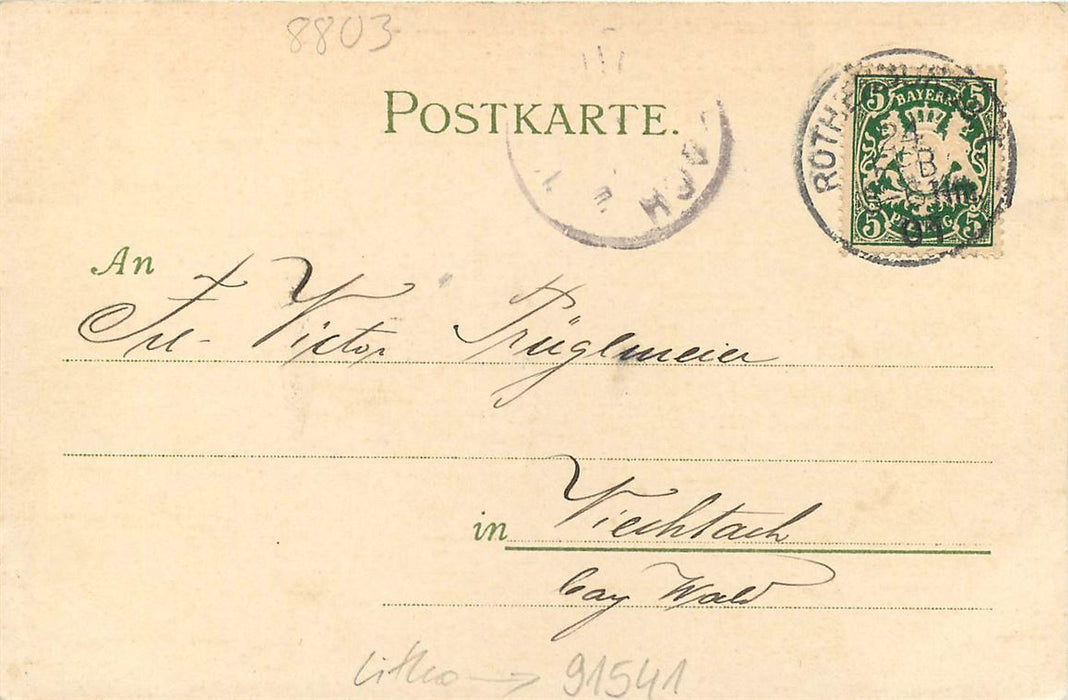 8803
POSTKARTE.
5 BAYERN 5
24
FEB
01
5 PFENNIG 5
An
Frl. Victor Trüglmeier
in Viechtach
bay Wald
Litho → 91541